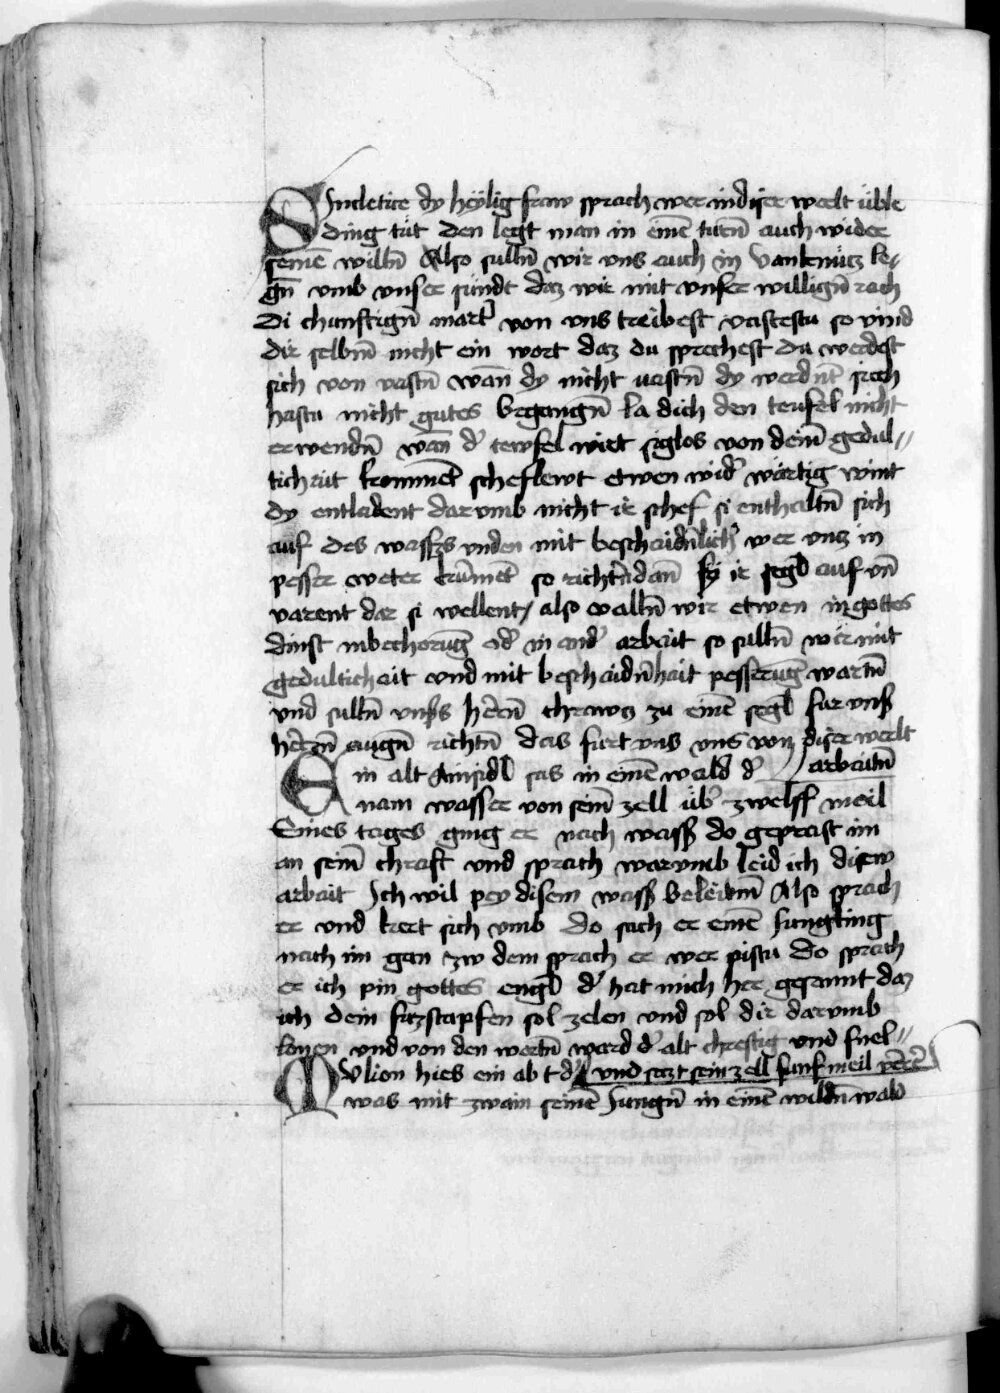 Sincletice dy heylig fraw sprach wer in diser werlt üble
ding tüt den legt man in einē turñ auch wider
seinē willñ Also sullñ wir uns auch in vankenüz le⸗
gñ umb unser sündt daz wir mit unser willigñ rach
Di chunftigñ mart̓ von uns treibest vastestu so vind
dir selbm̄ nicht ein wort daz du sprechest du werdest
sich von vastñ wān dy nicht vastñ dy werdn̄t sich
hastu nicht gutes begangñ la dich den teufel nicht
erwendñ wān d̓ tewfel wirt siglos von deim̄ gedul⸗
tichait kommēt scheflewt etwen wid̓ wärtig wint
dy entladent darumb nicht ir schef si enthaltñ sich
auf des wassers unden mit beschaidn̄lich̓ wer unz in
pesser weter kumēt so richtn̄ dan̄ sy ir segl auf un̄
varent dar si wellent / also wallñ wir etwen in gottes
dinst in bechorūg od̓ in and̓ arbait so sullñ wir mit
gedultichait und mit beschaidn̄hait pesserūg wartñ
und sullñ unss herñ chrawtz zu einē segl fur unss
herñ augñ richtñ das furt uns uns von diser werlt
arbaitñ
Ein alt Ainsidl sas in einē wald d̓
nam wasser von seim̄ zell üb̓ zwelff meil
Eines tages ging er nach wass̓ do geprast im
an seim̄ chraft und sprach warumb leid ich disew
arbait Ich wil pey disem wass̓ beleibm̄ Also sprach
er und kert sich umb do sach er einē Jungling
nach im gan zw dem sprach er wer pistu do sprach
er ich pin gottes engl d̓ hat mich her gesannt daz
ich dein fuzstapfen sol zelen und sol dir darumb
lonen und von den wortñ ward d̓ alt chreftig und snel⸗
und sezt sein zell funf meil v̄err̄
Mulion hies ein abt d̓
was mit zwain seinē Jungñ in einē wildñ wald